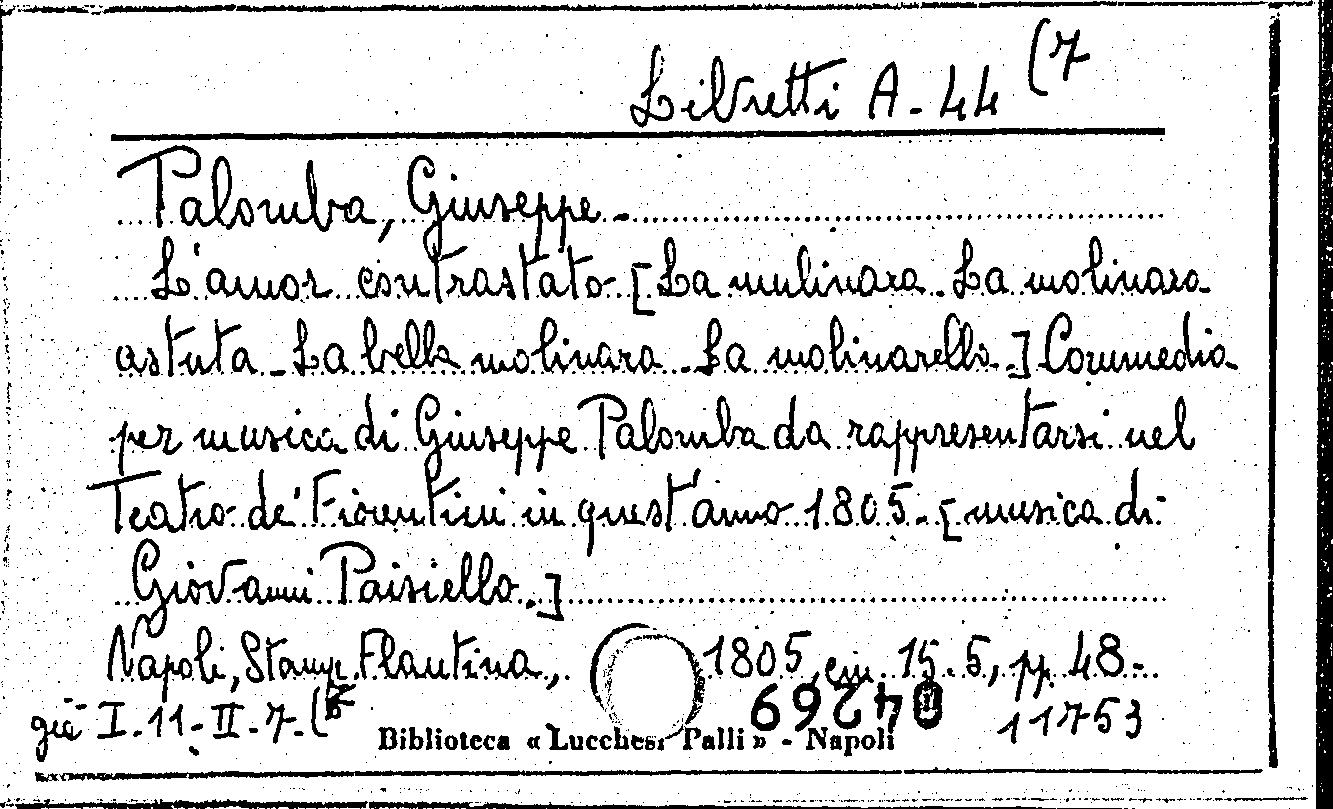 Libretti A-44 (7
Palomba, Giuseppe -
L'amor contrastato [La mulinara. La molinara
astuta - La bella molinara - La molinarella.] Commedia
per musica di Giuseppe Palomba da rappresentarsi nel
Teatro de' Fiorentini in quest'anno 1805 - [musica di
Giovanni Paisiello.]
Napoli, Stamp. Flautina, 1805, cm. 15.5, pp. 48 -
già I-11-II-7-(
04269
11753
Biblioteca « Lucchesi Palli » - Napoli